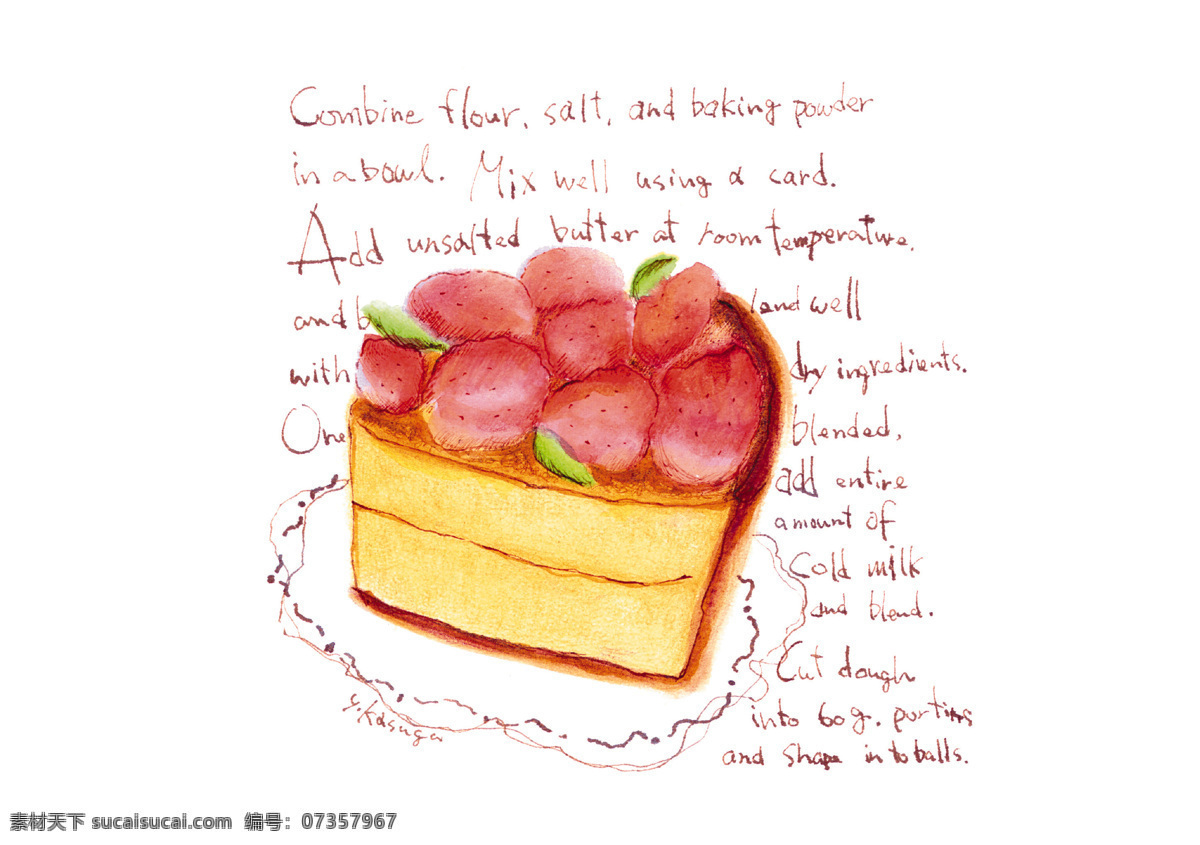 Combine flour, salt, and baking powder
in a bowl. Mix well using a card.
Add unsalted butter at room temperature.
and b lend well
with dry ingredients.
One blended,
add entire
amount of
Cold milk
and blend.
Cut dough
into 60g. portins
and shape in to balls.
y.Kasuga
素材天下 sucaisucai.com 编号：07357967